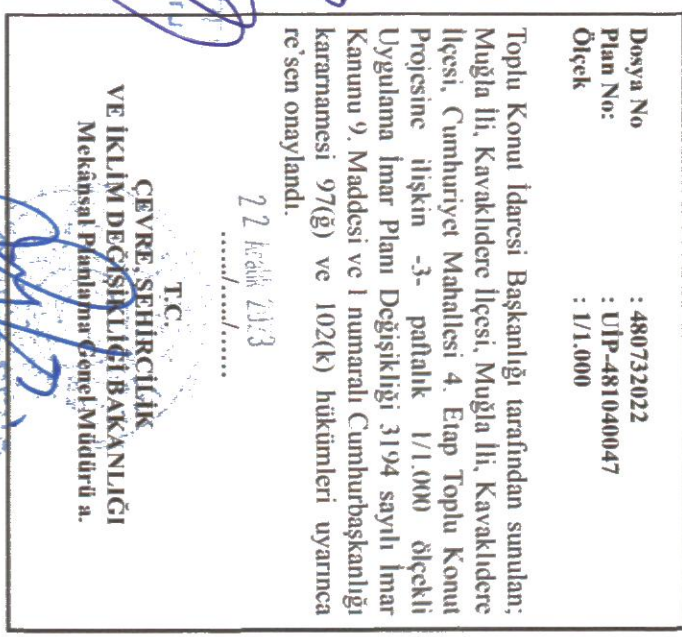 Dosya No : 480732022
Plan No: : UİP-481040047
Ölçek : 1/1.000
Toplu Konut İdaresi Başkanlığı tarafından sunulan;
Muğla İli, Kavaklıdere İlçesi, Muğla İli, Kavaklıdere
İlçesi, Cumhuriyet Mahallesi 4. Etap Toplu Konut
Projesine ilişkin -3- paftalık 1/1.000 ölçekli
Uygulama İmar Planı Değişikliği 3194 sayılı İmar
Kanunu 9. Maddesi ve 1 numaralı Cumhurbaşkanlığı
kararnamesi 97(ğ) ve 102(k) hükümleri uyarınca
re'sen onaylandı.
22 Aralık 2023
....../....../......
T.C.
ÇEVRE, ŞEHİRCİLİK
VE İKLİM DEĞİŞİKLİĞİ BAKANLIĞI
Mekânsal Planlama Genel Müdürü a.